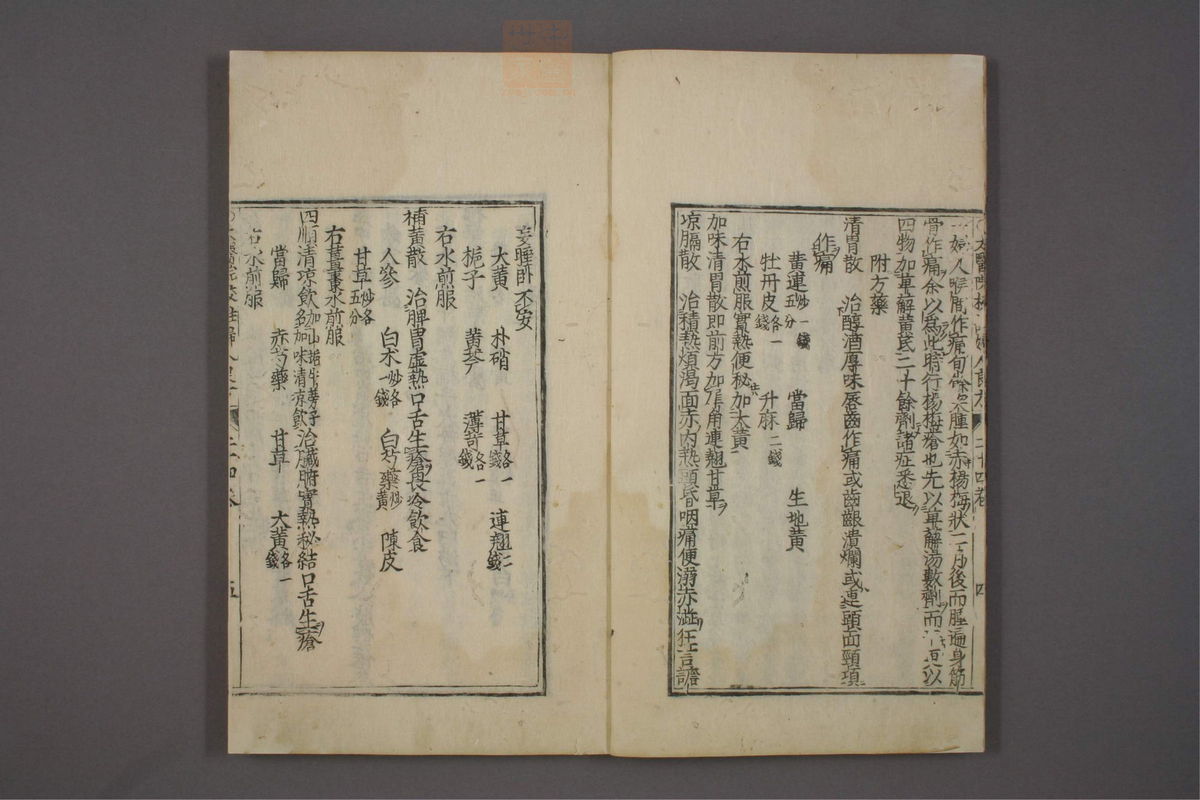 一婦人喉間作痛旬餘突腫如赤楊梅狀二月後而腫遍身筋
骨作痛余以爲此時行楊梅瘡也先以萆薢湯數劑而 更以
四物加萆薢黃芪二十餘劑諸症悉退
附方藥
清胃散 治醇酒厚味唇齒作痛或齒齦潰爛或連頭面頸項
作痛
黃連炒一錢五分 當歸 生地黃
牡丹皮各一錢 升麻二錢
右水煎服實熱便秘加大黃
加味清胃散即前方加犀角連翹甘草
凉膈散 治積熱煩渴面赤内熱頭昏咽痛便溺赤澁狂言譫
二十四卷 四
妄睡卧不安
大黃 朴硝 甘草各一錢 連翹二錢
梔子 黃芩 薄荷各一錢
右水煎服
補黃散 治脾胃虛熱口舌生瘡畏冷飲食
人參 白朮炒各一錢 白芍藥炒黃 陳皮
甘草炒各五分
右薑棗水煎服
四順清凉飲加山梔牛蒡子名加味清凉飲治臟腑實熱秘結口舌生瘡
當歸 赤芍藥 甘草 大黃各一錢
右水煎服
五